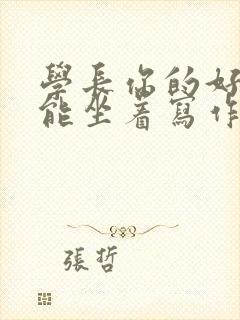 學長你的好
能坐着寫作
張哲